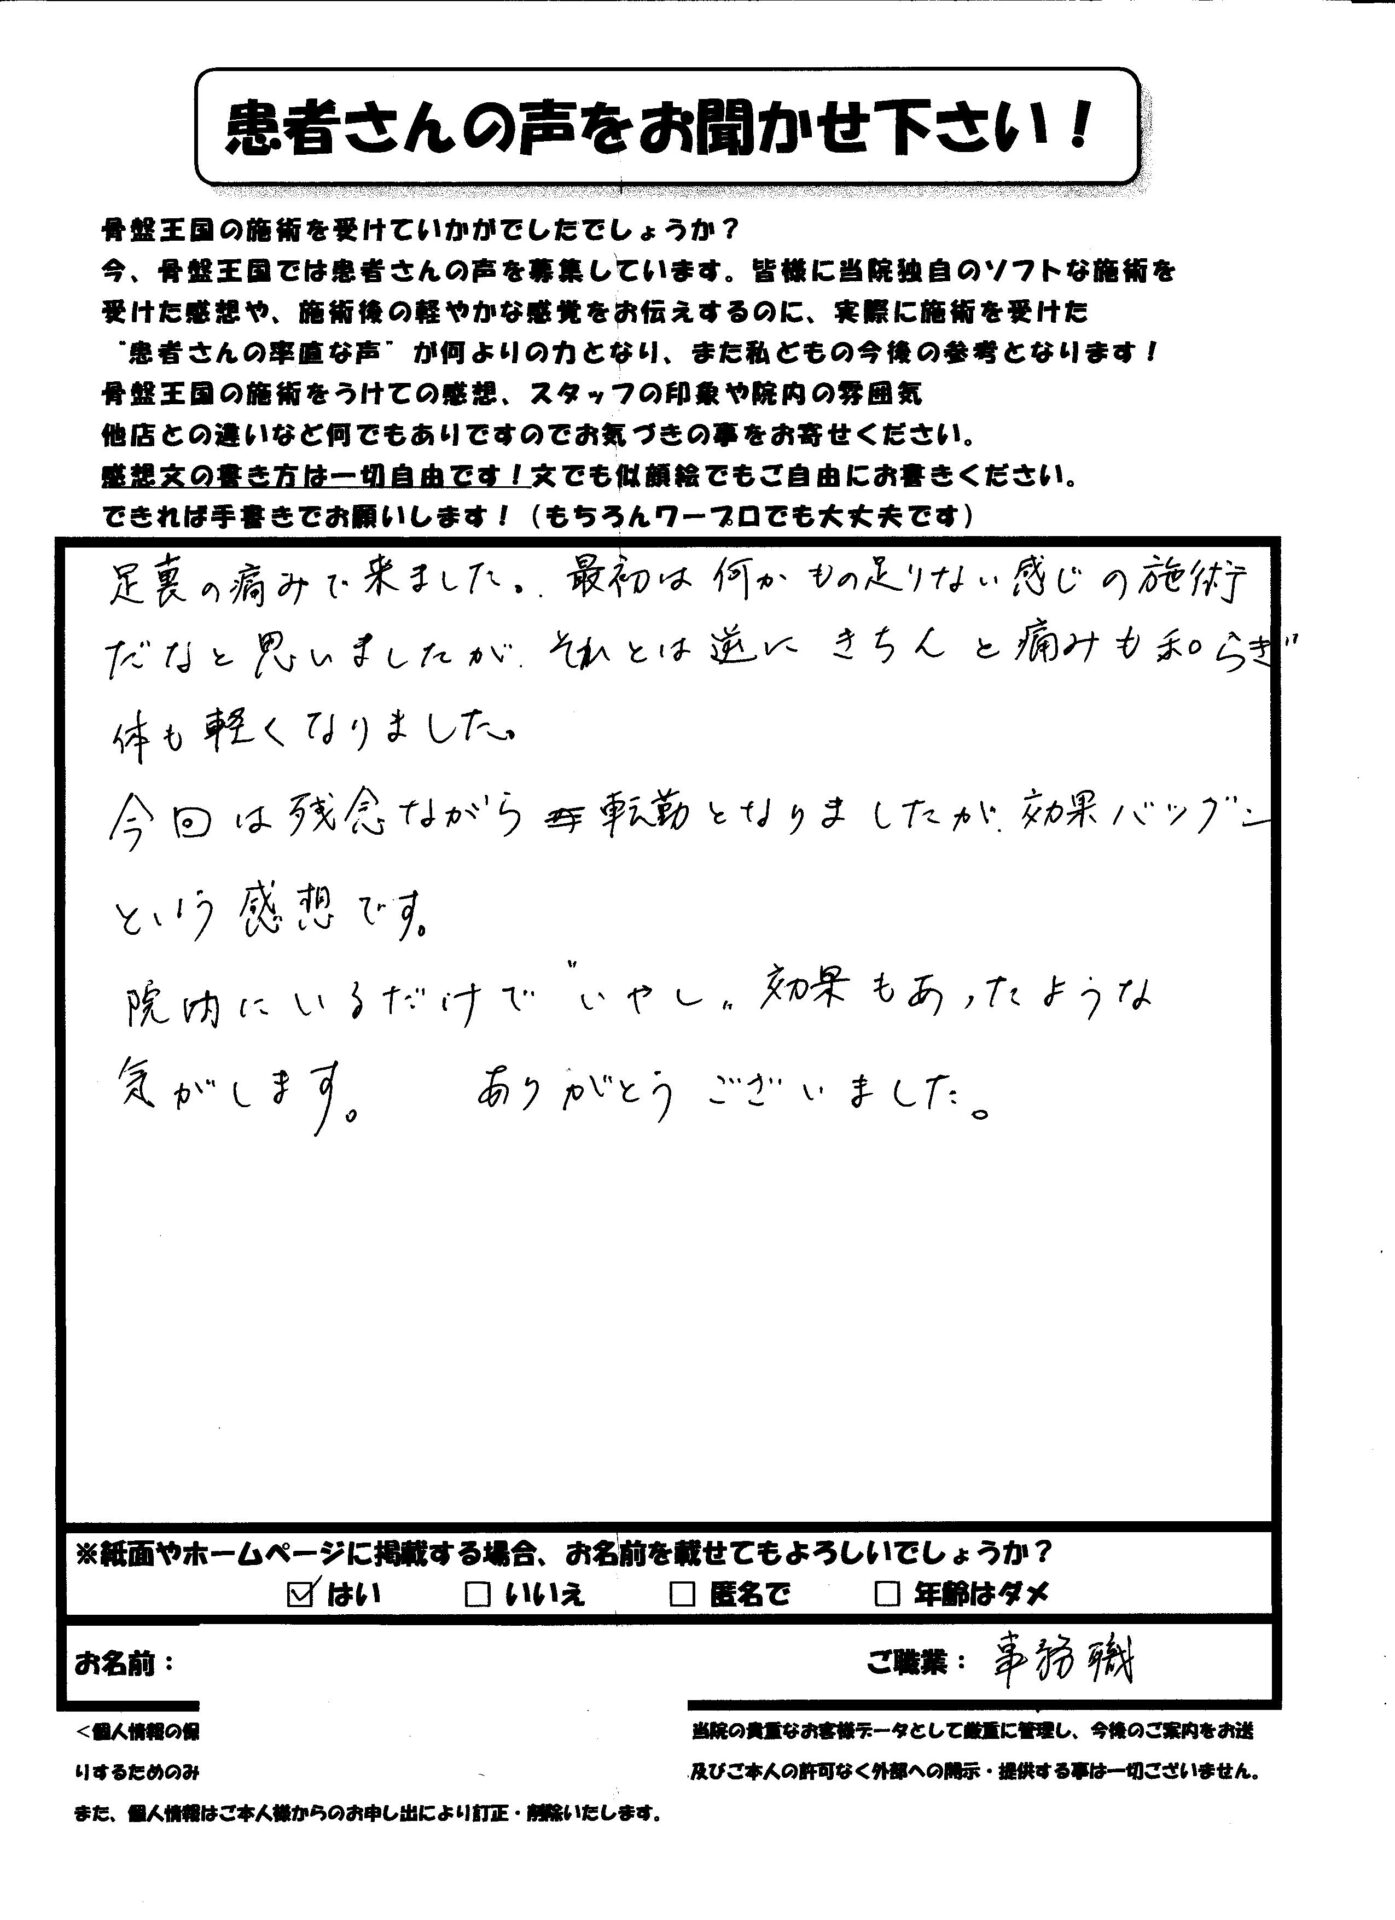 患者さんの声をお聞かせ下さい！
骨盤王国の施術を受けていかがでしたでしょうか？
今、骨盤王国では患者さんの声を募集しています。皆様に当院独自のソフトな施術を
受けた感想や、施術後の軽やかな感覚をお伝えするのに、実際に施術を受けた
"患者さんの率直な声"が何よりの力となり、また私どもの今後の参考となります！
骨盤王国の施術をうけての感想、スタッフの印象や院内の雰囲気
他店との違いなど何でもありですのでお気づきの事をお寄せください。
感想文の書き方は一切自由です！文でも似顔絵でもご自由にお書きください。
できれば手書きでお願いします！（もちろんワープロでも大丈夫です）
足裏の痛みで来ました。最初は何かもの足りない感じの施術
だなと思いましたが、それとは逆にきちんと痛みも和らぎ
体も軽くなりました。
今回は残念ながら転勤となりましたが、効果バツグン
という感想です。
院内にいるだけで"いやし"効果もあったような
気がします。 ありがとうございました。
※紙面やホームページに掲載する場合、お名前を載せてもよろしいでしょうか？
☑はい □いいえ □匿名で □年齢はダメ
お名前： ご職業：事務職
＜個人情報の保 当院の貴重なお客様データとして厳重に管理し、今後のご案内をお送
りするためのみ 及びご本人の許可なく外部への開示・提供する事は一切ございません。
また、個人情報はご本人様からのお申し出により訂正・削除いたします。